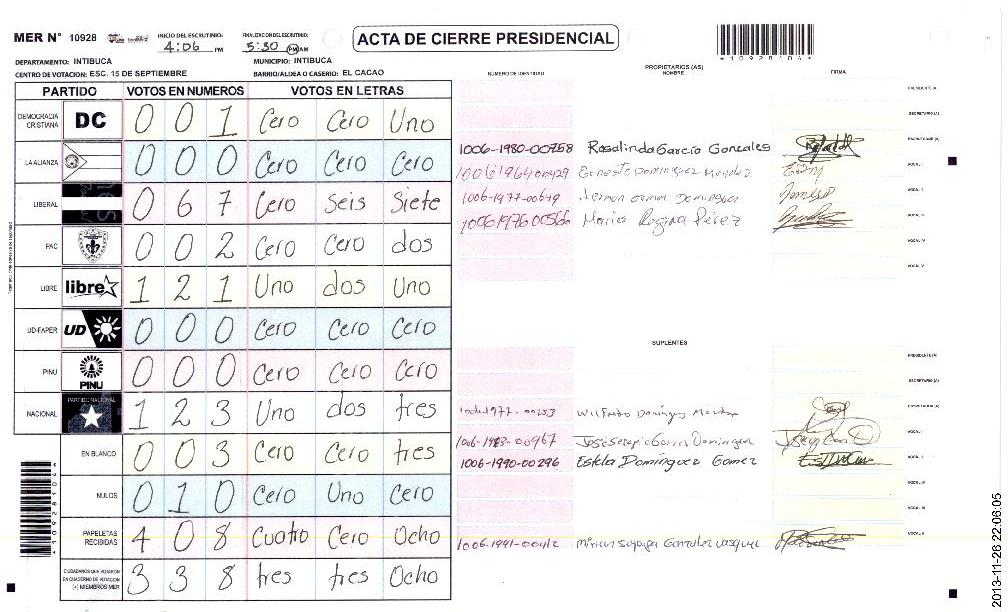 MER N° 10928 INICIO DEL ESCRUTINIO: 4:06 PM FINALIZACION DEL ESCRUTINIO: 5:30 PM AM ACTA DE CIERRE PRESIDENCIAL
*10928104*
DEPARTAMENTO: INTIBUCA MUNICIPIO: INTIBUCA
CENTRO DE VOTACION: ESC. 15 DE SEPTIEMBRE BARRIO/ALDEA O CASERIO: EL CACAO
PARTIDO VOTOS EN NUMEROS VOTOS EN LETRAS
DEMOCRACIA CRISTIANA DC 0 0 1 Cero Cero Uno
LA ALIANZA 0 0 0 Cero Cero Cero
LIBERAL 0 6 7 Cero Seis Siete
PAC 0 0 2 Cero Cero dos
LIBRE libre 1 2 1 Uno dos Uno
UD-FAPER UD 0 0 0 Cero Cero Cero
PINU PINU 0 0 0 Cero Cero Cero
NACIONAL PARTIDO NACIONAL 1 2 3 Uno dos tres
EN BLANCO 0 0 3 Cero Cero tres
NULOS 0 1 0 Cero Uno Cero
PAPELETAS RECIBIDAS 4 0 8 Cuatro Cero Ocho
CIUDADANOS QUE VOTARON EN CUADERNO DE VOTACION (+) MIEMBROS MER 3 3 8 tres tres Ocho
NUMERO DE IDENTIDAD PROPIETARIOS (AS) NOMBRE FIRMA
PRESIDENTE (A)
SECRETARIO (A)
1006-1980-00758 Rosalinda García Gonzales ESCRUTADOR (A)
1006196400429 Ernesto Domínguez Méndez VOCAL I
1006-1977-00649 Domínguez VOCAL II
1006197600566 Maria Regina Pérez VOCAL III
VOCAL IV
VOCAL V
SUPLENTES
PRESIDENTE (A)
SECRETARIO (A)
Wilfredo ESCRUTADOR (A)
1006-1983-00967 Domínguez VOCAL I
1006-1990-00296 Estela Domínguez Gomez VOCAL II
VOCAL III
VOCAL IV
Gonzalez Vasquez VOCAL V
*10928104*
2013-11-26 22:06:05